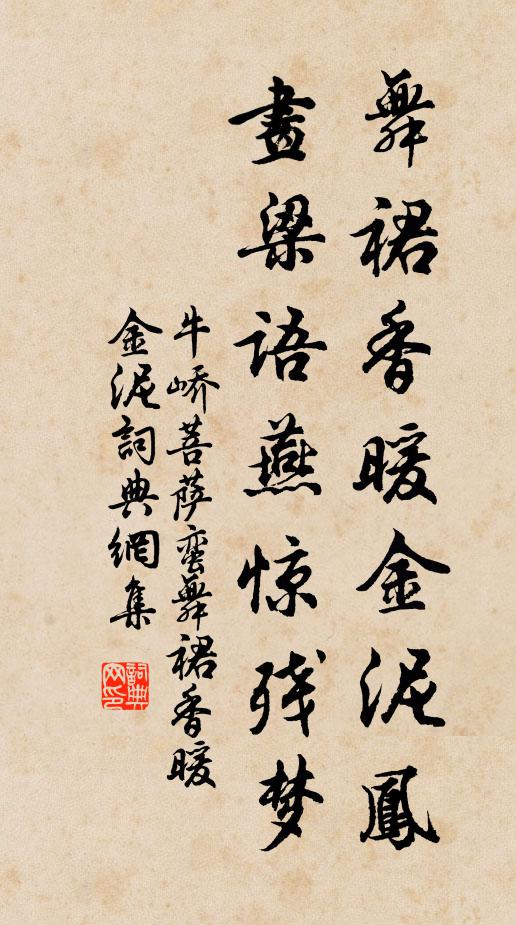 舞裙香暖金泥鳳
畫梁語燕惊残梦
牛峤菩萨蛮舞裙香暖
金泥詞典網集
詞典网印